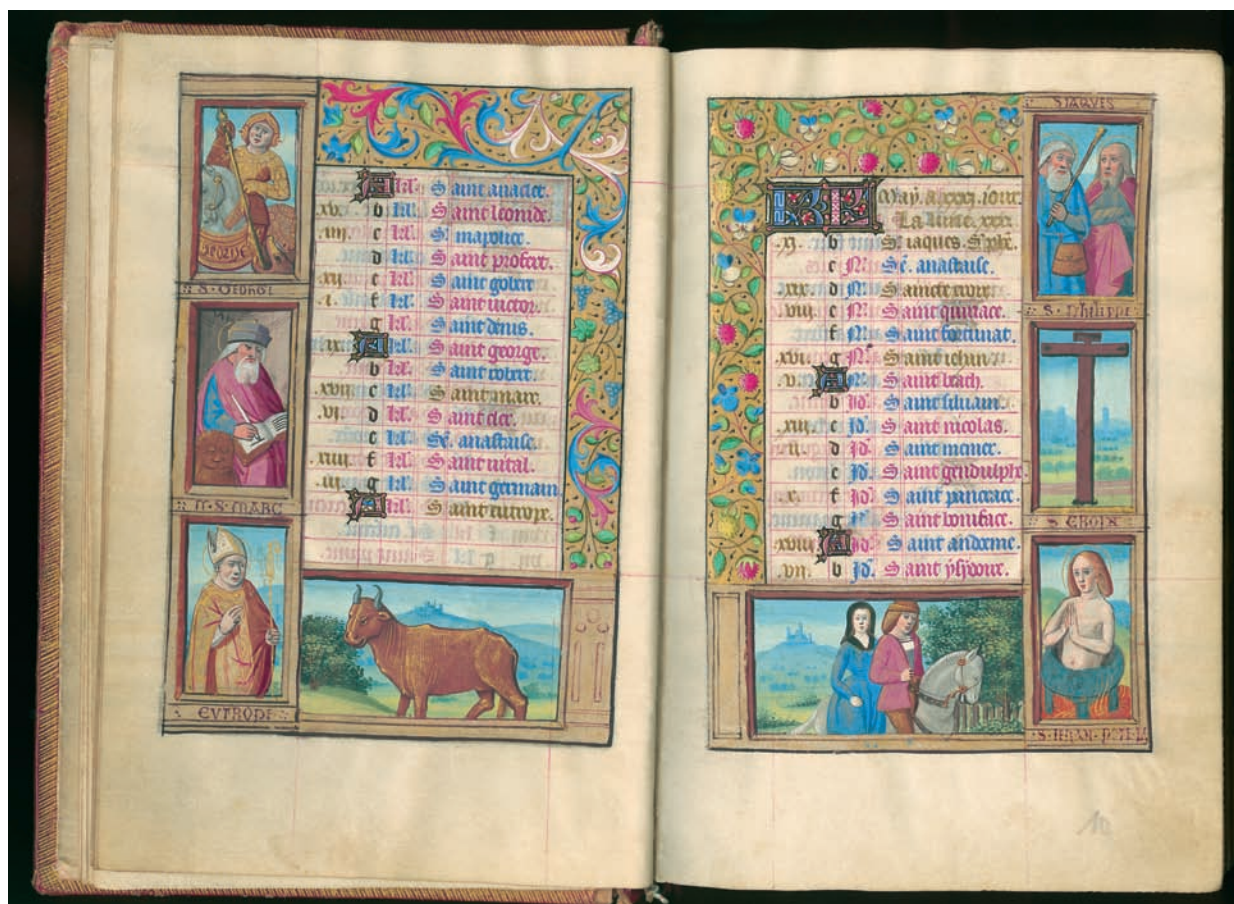 A kl. Saint anaclet.
.xv. b kl. Saint leonide.
.iiij. c kl. S. mapolice.
d kl. Saint proiect.
.xij. e kl. Saint gobert
.i. f kl. Saint victor.
g kl. Saint denis.
.ix. A kl. Saint george.
b kl. Saint robert.
.xvij. c kl. Saint marc.
.vi. d kl. Saint clee.
e kl. Se. anastaise.
.xiiij. f kl. Saint vital.
.iij. g kl. Saint germain
A Saint eutrope.
GEORGE
N. S. MARC
EVTROPE
KL May. a. xxxj. iour.
La lune. xxx.
.xj. b S. iaques. S. phe.
c N. Se. anastaise.
.xix. d N. Saincte croix.
.viij. e N. Saint quiriace.
f N. Saint fortunat.
.xvi. g N. Saint iehan.
.v. A N. Saint
b Id. Saint siluain.
.xiij. c Id. Saint nicolas.
.ij. d Id. Saint
e Id. Saint gendulphe.
.x. f Id. Saint pancrace.
g Id. Saint boniface.
.xviij. A Id. Saint andoeme.
.vij. b Id. Saint ysydore.
S IAQVES
S. Philippe
S CROIX
S. IEHAN
10